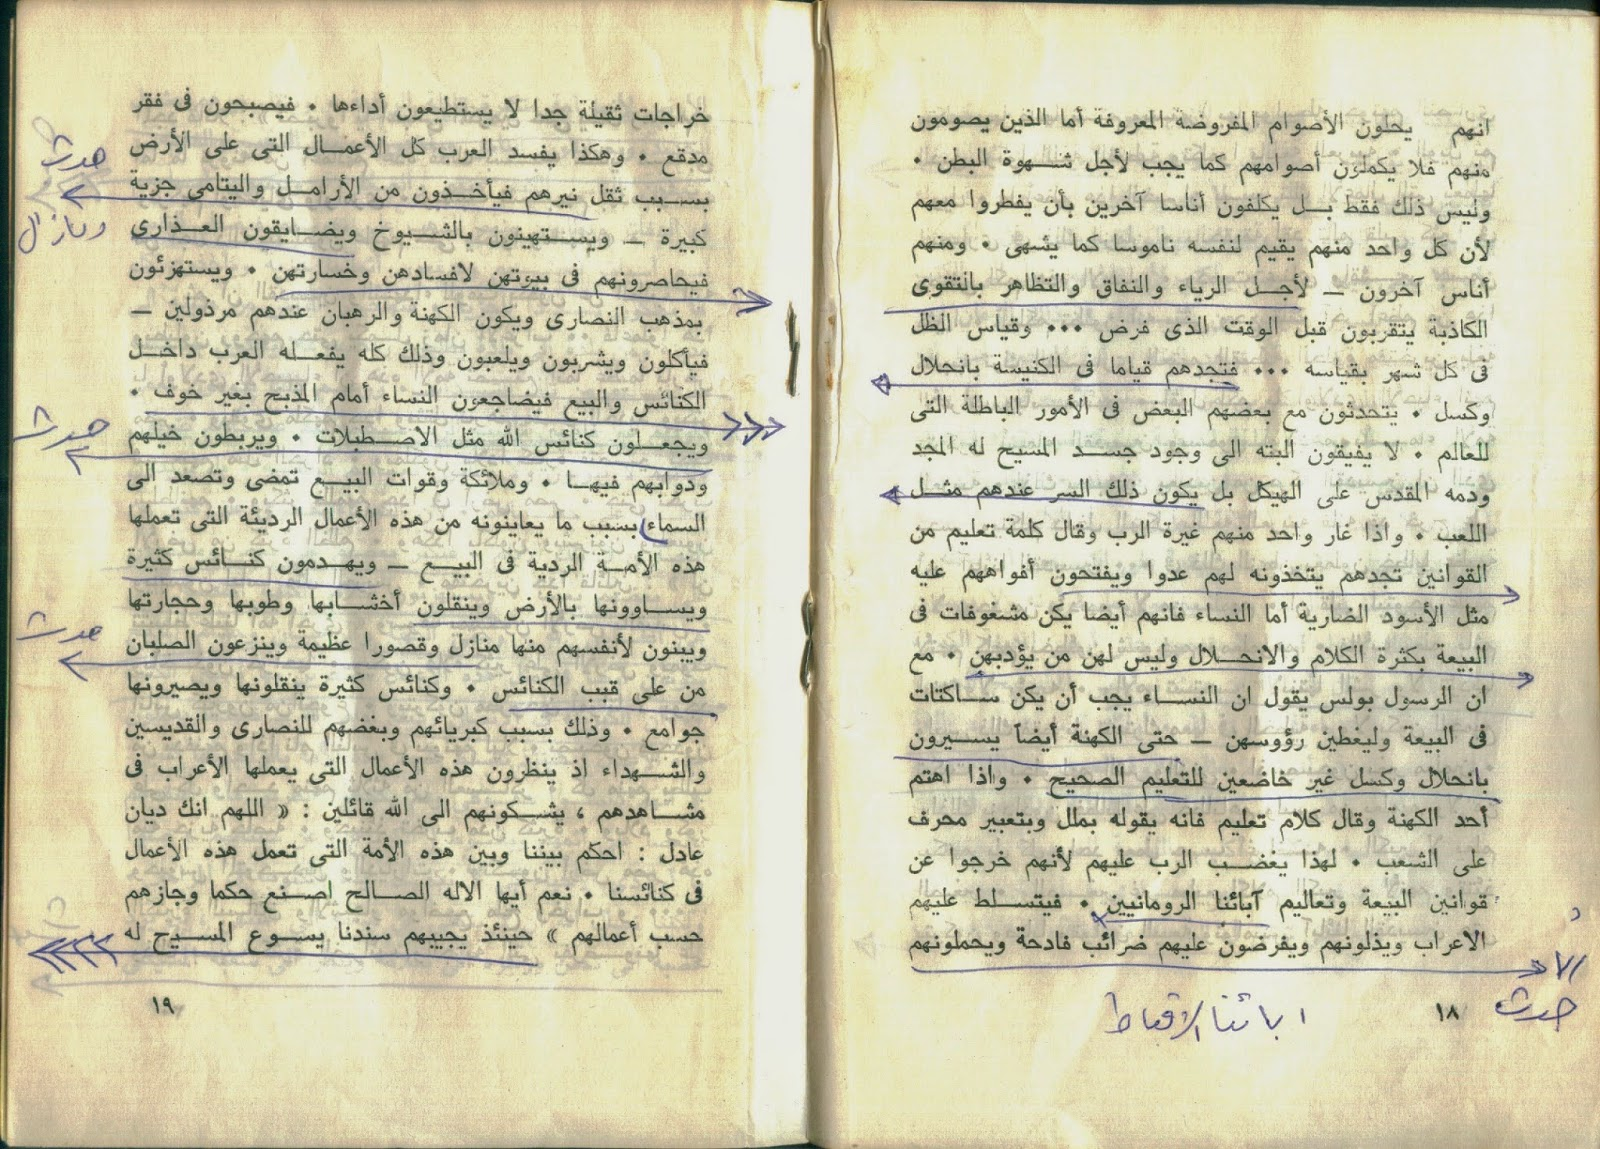 انهم يحلون الأصوام المفروضة المعروفة أما الذين يصومون
منهم فلا يكملون أصوامهم كما يجب لأجل شهوة البطن •
وليس ذلك فقط بل يكلفون أناسا آخرين بأن يفطروا معهم
لأن كل واحد منهم يقيم لنفسه ناموسا كما يشهى • ومنهم
أناس آخرون ـ لأجل الرياء والنفاق والتظاهر بالتقوى
الكاذبة يتقربون قبل الوقت الذى فرض ••• وقياس الظل
فى كل شهر بقياسه ••• فتجدهم قياما فى الكنيسة بانحلال
وكسل • يتحدثون مع بعضهم البعض فى الأمور الباطلة التى
للعالم • لا يفيقون البته الى وجود جسد المسيح له المجد
ودمه المقدس على الهيكل بل يكون ذلك السر عندهم مثل
اللعب • واذا غار واحد منهم غيرة الرب وقال كلمة تعليم من
القوانين تجدهم يتخذونه لهم عدوا ويفتحون أفواههم عليه
مثل الأسود الضارية أما النساء فانهم أيضا يكن مشغوفات فى
البيعة بكثرة الكلام والانحلال وليس لهن من يؤدبهن • مع
ان الرسول بولس يقول ان النساء يجب أن يكن ساكتات
فى البيعة وليغطين رؤوسهن ـ حتى الكهنة أيضاً يسيرون
بانحلال وكسل غير خاضعين للتعليم الصحيح • واذا اهتم
أحد الكهنة وقال كلام تعليم فانه يقوله بملل وبتعبير محرف
على الشعب • لهذا يغضب الرب عليهم لأنهم خرجوا عن
قوانين البيعة وتعاليم آبائنا الرومانيين • فيتسلط عليهم
الاعراب ويذلونهم ويفرضون عليهم ضرائب فادحة ويحملونهم
حدث
ابائنا الاقباط
١٨
خراجات ثقيلة جدا لا يستطيعون أداءها • فيصبحون فى فقر
مدقع • وهكذا يفسد العرب كل الأعمال التى على الأرض
حدث
بسبب ثقل نيرهم فيأخذون من الأرامل واليتامى جزية
ومازال
كبيرة ـ ويستهينون بالشيوخ ويضايقون العذارى
فيحاصرونهم فى بيوتهن لافسادهن وخسارتهن • ويستهزئون
بمذهب النصارى ويكون الكهنة والرهبان عندهم مرذولين ـ
فيأكلون ويشربون ويلعبون وذلك كله يفعله العرب داخل
الكنائس والبيع فيضاجعون النساء أمام المذبح بغير خوف •
حدث
ويجعلون كنائس الله مثل الاصطبلات • ويربطون خيلهم
ودوابهم فيها • وملائكة وقوات البيع تمضى وتصعد الى
السماء بسبب ما يعاينونه من هذه الأعمال الرديئة التى تعملها
هذه الأمة الردية فى البيع ـ ويهدمون كنائس كثيرة
ويساوونها بالأرض وينقلون أخشابها وطوبها وحجارتها
حدث
ويبنون لأنفسهم منها منازل وقصورا عظيمة وينزعون الصلبان
من على قبب الكنائس • وكنائس كثيرة ينقلونها ويصيرونها
جوامع • وذلك بسبب كبريائهم وبغضهم للنصارى والقديسين
والشهداء اذ ينظرون هذه الأعمال التى يعملها الأعراب فى
مشاهدهم ، يشكونهم الى الله قائلين : « اللهم انك ديان
عادل : احكم بيننا وبين هذه الأمة التى تعمل هذه الأعمال
فى كنائسنا • نعم أيها الاله الصالح اصنع حكما وجازهم
حسب أعمالهم » حينئذ يجيبهم سندنا يسوع المسيح له
١٩